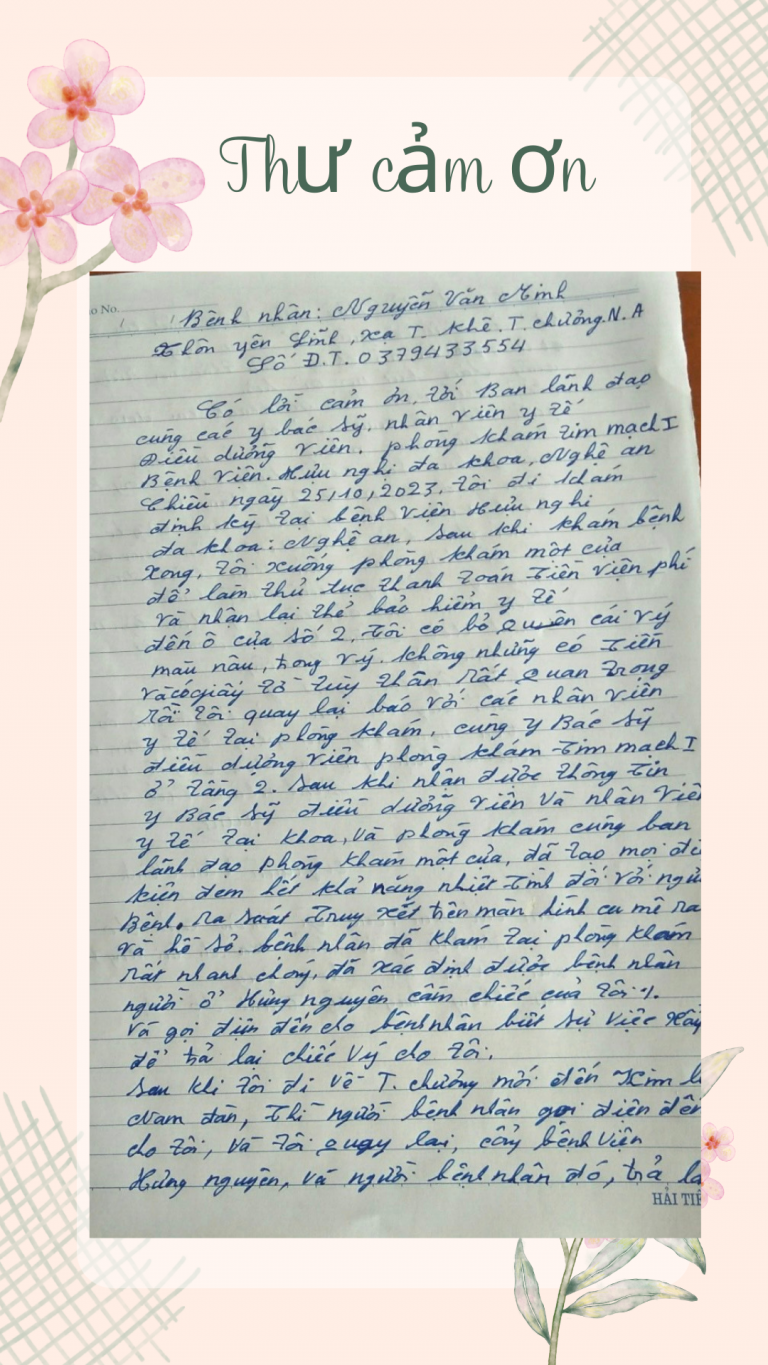 Thư cảm ơn
o No.
Bênh nhân: Nguyễn Văn Minh
Thôn yên Lĩnh, xa T. Khê. T. chưởng. N. A
Số Đ.T. 0379433554
Có lời cảm ơn, tới Ban lãnh đạo
cung các y bác sỹ, nhân viên y tế
Điều dưỡng viên. phòng khám tim mạch I
Bệnh viện. Hưu nghị đa khoa, Nghệ an
Chiều ngày 25/10/2023, tôi đi khám
định kỳ tại bệnh viện Hưu nghi
đa khoa: Nghệ an, sau khi khám bệnh
xong, tôi xuống phòng khám một cửa
để lam thủ tục thanh toán tiền viện phí
và nhận lại thẻ bảo hiểm y tế
đến ô cửa số 2, tôi có bỏ quên cái vý
mau nâu, trong vý. không những có tiền
và có giấy tờ tùy thân rất quan trọng
rồi tôi quay lại bao với các nhân viên
y tế tại phòng khám, cung y Bác sỹ
điều dưỡng viên phòng khám tim mạch I
ở tầng 2. sau khi nhận được thông tin
y Bác sỹ điều dưỡng viên và nhân viên
y tế tại khoa, và phòng khám cung ban
lãnh đạo phòng kham một cửa, đã tạo mọi
kiện đem hết khả năng nhiệt tình đối với
Bệnh. ra soát truy xét trên màn hình ca mê ra
và hồ sơ. bệnh nhân đã kham tại phòng kham
rất nhanh chóng, đã xác định được bệnh nhân
người ở Hưng nguyên cầm chiếc của tôi.
và gọi điện đến cho bệnh nhân biết sự việc
để trả lai chiếc vý cho tôi.
sau khi tôi đi về T. chưởng mới đến Kim
Nam đàn, thì người bệnh nhân gọi điện đến
cho tôi, và tôi quay lại, cổng bệnh viện
Hưng nguyên, và người bênh nhân đó, trả
HẢI TIẾ